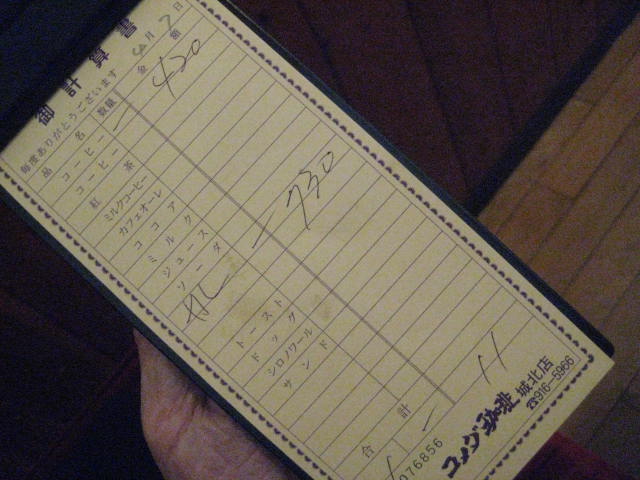 御計算書
毎度ありがとうございます 月 7 日
品名 数量 金額
コーヒー 一 420
コーヒー
紅茶
ミルクコーヒー
カフェオーレ
ココア
ミルク
ジュース
ソーダ 一 730
トースト
ドッグ
シロノワール
サンド
合計
076856
コメダ珈琲 城北店
☎916-5966